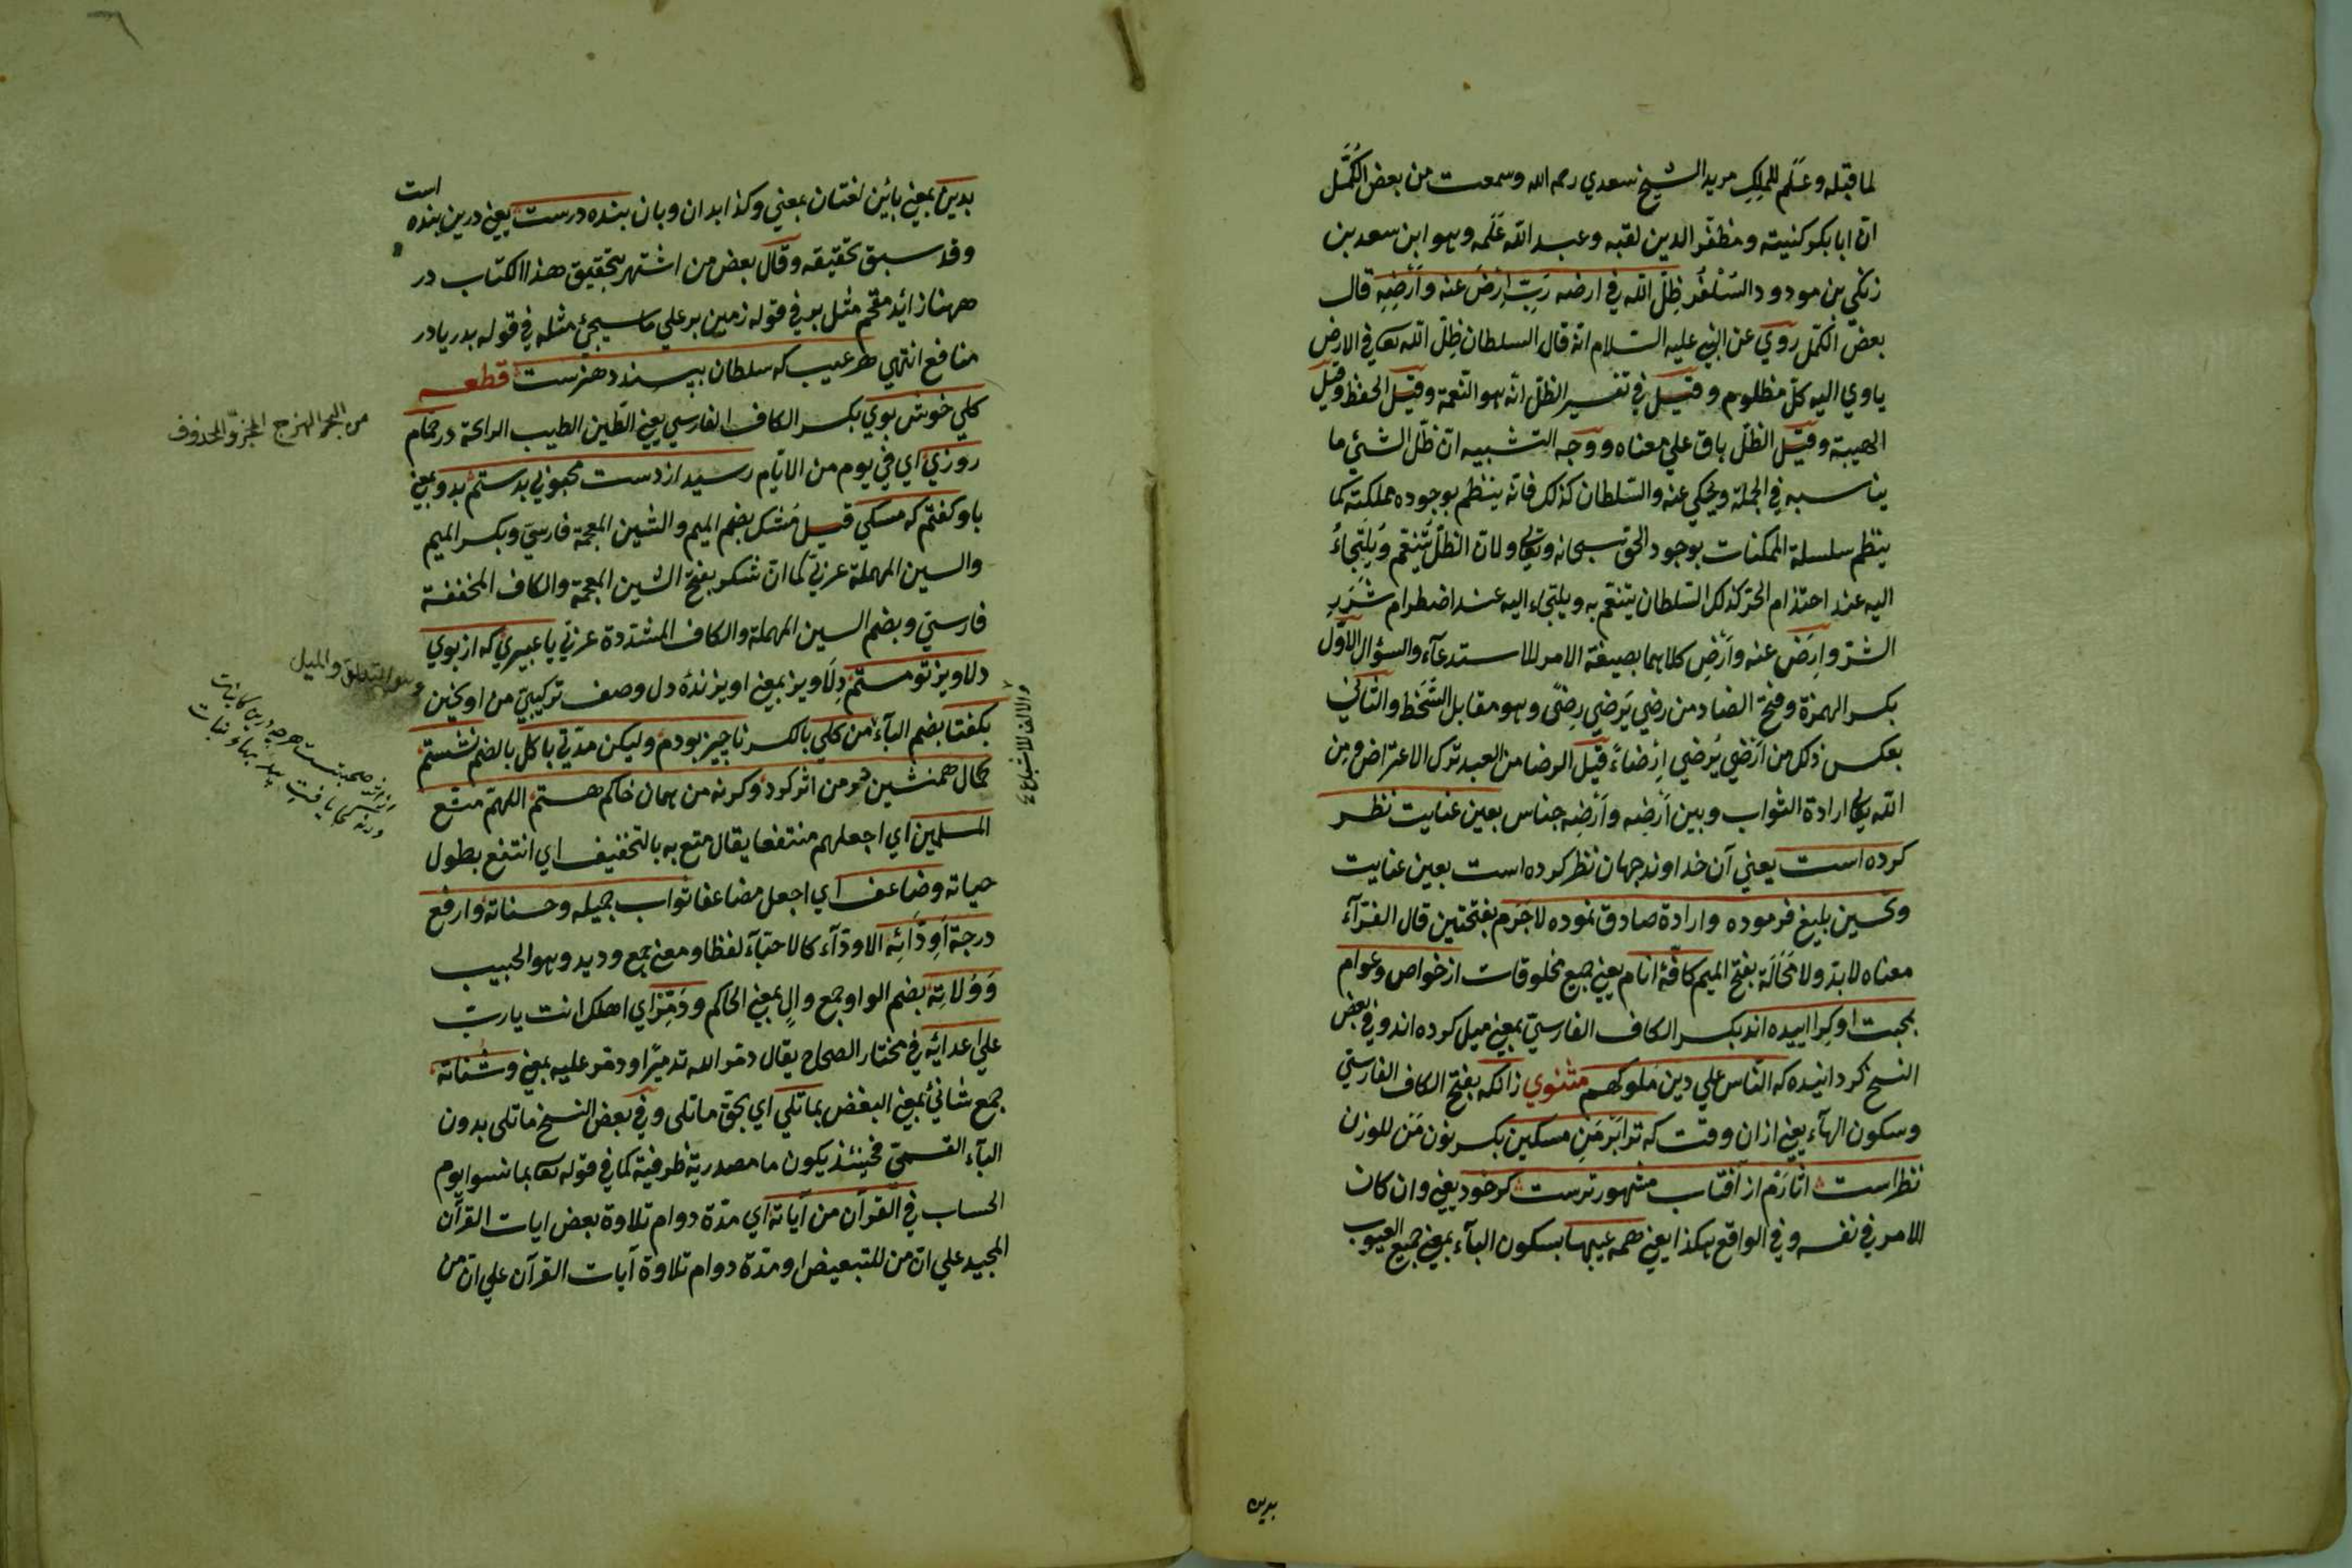 لما قبله وعلم للملك مريد الشيخ سعدي رحمه الله وسمعت من بعض الكُمَّل
ان ابا بكر كنيته ومظفّر الدين لقبه وعبد الله عَلَمه وهو ابن سعد بن
زنكي بن مودود السَلْغُر ظِلّ الله في ارضه رَبِّ اِرْضَ عنه وَاَرْضِه قال
بعض الكمّل روي عن النبي عليه السّلام انه قال السلطان ظِلّ الله تعا في الارض
ياوي اليه كلّ مظلوم وقيل في تفسير الظلّ انّه هو النّعمة وقيل الحفظ وقيل
الهيبة وقيل الظلّ باق علي معناه ووجه التشبيه انّ ظلّ الشئ ما
يناسبه في الجملة ويحكي عنه والسّلطان كذلك فانّه ينتظم بوجوده مملكته كما
ينتظم سلسلة الممكنات بوجود الحق سبحانه وتعالي ولانّ الظلّ يُتنعّم ويُلتَجاءُ
اليه عند احتذام الحرّ كذلك السّلطان يتنعّم به ويلتجاء اليه عند اضطرام شَرَرِ
الشرّ واِرْضَ عنه واَرْضِ كلاهما بصيغة الامر للاستدعآء والسؤال الاوّل
بكسر الهمزة وفتح الضاد من رضي يَرضي رِضًي وهو مقابل السَّخط والثاني
بعكس ذلك من اَرْضي يُرضي اِرضاءً قيل الرضا من العبد ترك الاعتراض ومن
الله تعالي ارادة الثواب وبين اَرضِه واَرْضِه جناس بعين عنايت نظر
كرده است يعني آن خداوند جهان نظر كرده است بعين عنايت
وتحسين بليغ فرموده وارادة صادق نموده لاجَرَم بفتحتين قال الفرّآء
معناه لا بدّ ولا مَحَالَة بفتح الميم كافّۀ انام يعني جميع مخلوقات از خواص وعوام
بمحبت او كراييده اند بكسر الكاف الفارسيّ بمعني ميل كرده اند وفي بعض
النسخ كردانيده كه النّاس علي دين ملوكهم مثنوي زانكه بفتح الكاف الفارسيّ
وسكون الهآء يعني ازان وقت كه ترا بَر مَنِ مسكين بكسر نون مَن للوزن
نظر است اثارَم از آفتاب مشهورترست كر خود يعني وان كان
الامر في نفسه وفي الواقع هكذا يعني همه عيبها بسكون البآء بمعني جميع العيوب
بدين
بدين بمعني باين لغتان بمعني وكذا بدان وبان بنده درست يعني درين بنده
است
وقد سبق تحقيقه وقال بعض من اشتهر بتحقيق هذا الكتاب در
ههنا زائد مقحم مثل بر في قوله زمين بر علي ما سيجيئ مثله في قوله بدريا در
منافع انتهي هر عيب كه سلطان بپسندد هنرست قطعه
كلي خوش بوي بكسر الكاف الفارسي يعني الطّين الطيب الرائحة در حمّام
روزي اي في يوم من الايّام رسيد از دست محبوبي بدستم بدو بمعني
باو كفتم كه مسكي قيل مُشك بضم الميم والشين المعجمة فارسيّ وبكسر الميم
والسين المهملة عربيّ كما ان شكر بفتح الشين المعجمة والكاف المخففة
فارسيّ وبضم السين المهملة والكاف المشدّدة عربيّ يا عبيري كه از بوي
دلاويز تو مستم دِلاويز بمعني اويزندۀ دل وصف تركيبيّ من اويختن
بكفتا بضم البآء من كلي بالكسر ناجيز بودم وليكن مدّتي با كل بالضم نشستم
كمال همنشين در من اثر كرد وكرنه من همان خاكم هستم اللهمّ متّع
المسلمين اي اجعلهم منتفعا يقال متع به بالتخفيف اي انتفع بطول
حياته وضاعف اي اجعل مضاعفا ثواب جميله وحسناته وارفع
درجة اَوِدّائِه الاودّآء كالاحبّآء لفظا ومعني جمع وديد وهو الحبيب
وَوُلاتِه بضم الواو جمع والٍ بمعني الحاكم ودَمِّر اي اهلك انت يا ربّ
علي اعدائه في مختار الصحاح يقال دمّر الله تدميرًا ودمّر عليه بمعني وشُناته
جمع شانئ بمعني البغض بما تلي اي بحقّ ما تلي وفي بعض النسخ ما تلي بدون
البآء القسميّ فحينئذ يكون ما مصدرية ظرفية كما في قوله تعا بما نسوا يوم
الحساب في القرآن من آياته اي مدّة دوام تلاوة بعض ايات القرآن
المجيد علي انّ من للتبعيض او مدّة دوام تلاوة آيات القرآن علي انّ من
من البحر الهزج المحذوف
وهو التعلق والميل
والالف للاشباع